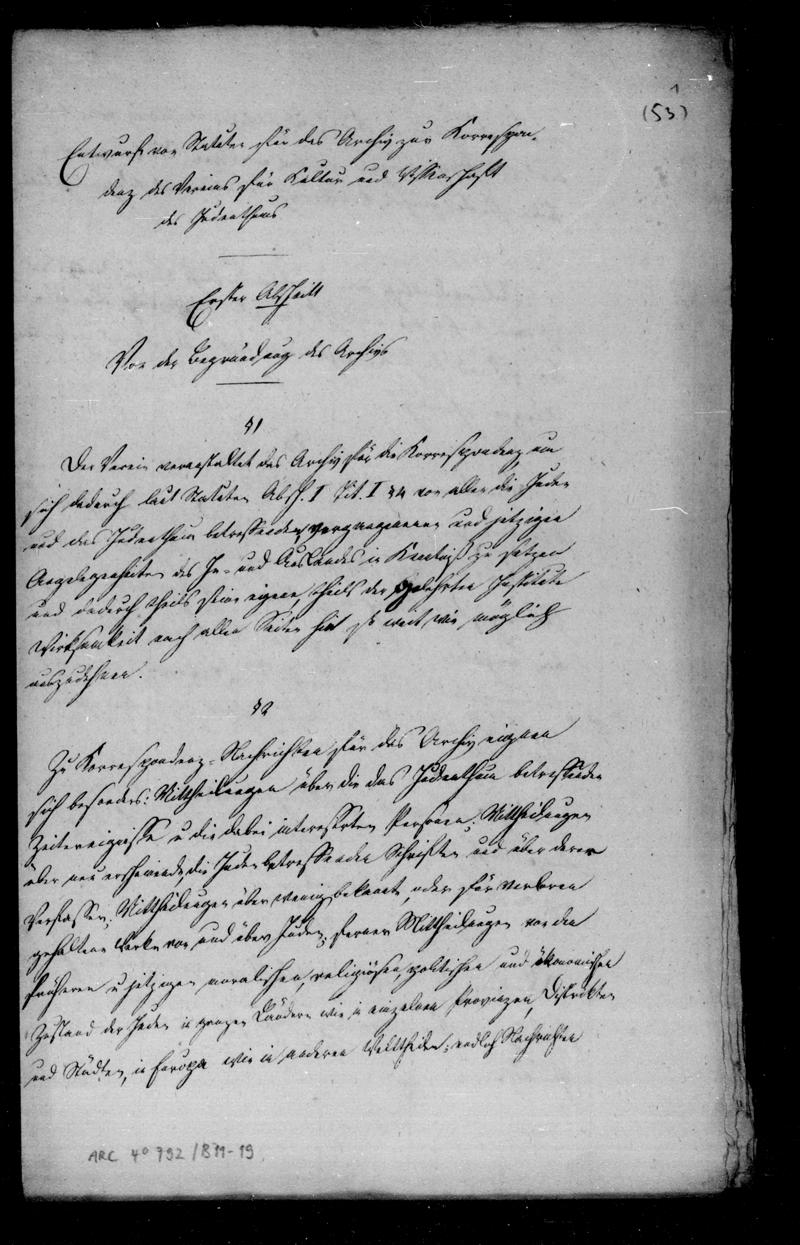 1
(53)
Entwurf von Statuten für das Archiv zur Korrespon-
denz des Vereins für Kultur und Wissenschaft
des Judenthums
Erster Abschnitt
Von der Begründung des Archivs
§1
Der Verein veranstaltet das Archiv für die Korrespondenz, um
sich dadurch laut Statuten Absch. I Tit. I §4 von allen die Juden
und das Judenthum betreffenden vergangenen und jetzigen
Angelegenheiten des In- und Auslandes in Kenntniß zu setzen
und dadurch theils seine eigene, theils der gelehrten Institute
Wirksamkeit nach allen Seiten hin so weit wie möglich
auszudehnen.
§2
Zu Korrespondenz-Nachrichten für das Archiv eignen
sich besonders: Mittheilungen über die das Judenthum betreffenden
Zeitereignisse u die dabei interessirten Personen; Mittheilungen
über neu erscheinende die Juden betreffenden Schriften und über deren
Verfasser; Mittheilungen über wenig bekannte, oder für verloren
gehaltene Werke von und über Juden; ferner Mittheilungen von den
früheren u jetzigen moralischen, religiösen, politischen und ökonomischen
Zustand der Juden in ganzen Ländern wie in einzelnen Provinzen, Distrikten
und Städten, in Europa wie in anderen Welttheilen; endlich Nachrichten
ARC 4° 792 / B11-19